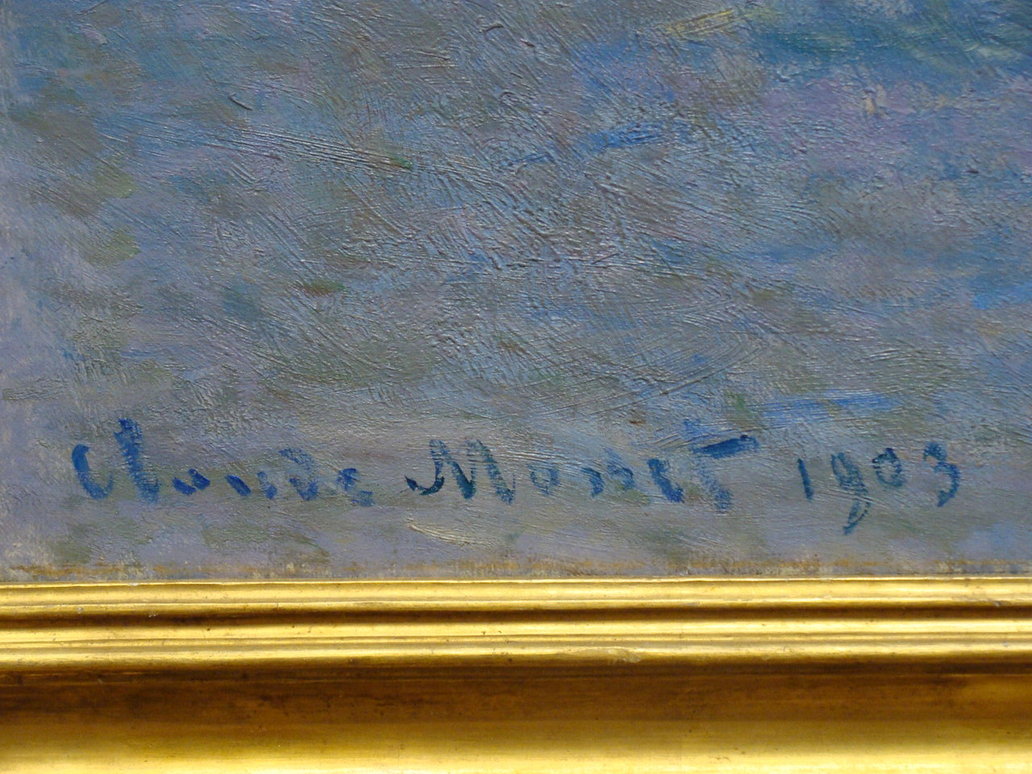 Claude Monet 1903